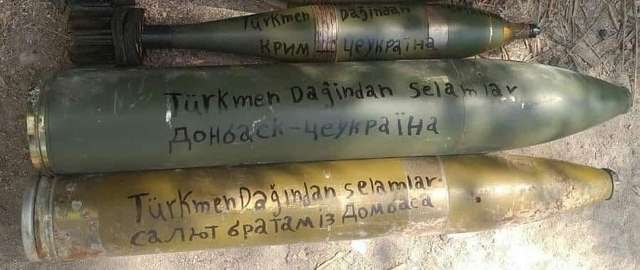 Türkmen Dağından
КРИМ - ЧЕУКРАЇНА
Türkmen Dağından Selamlar
ДОНБАСК-ЧЕУКРАЇНА
Türkmen Dağından selamlar.
САЛЮТ братам із Домбаса